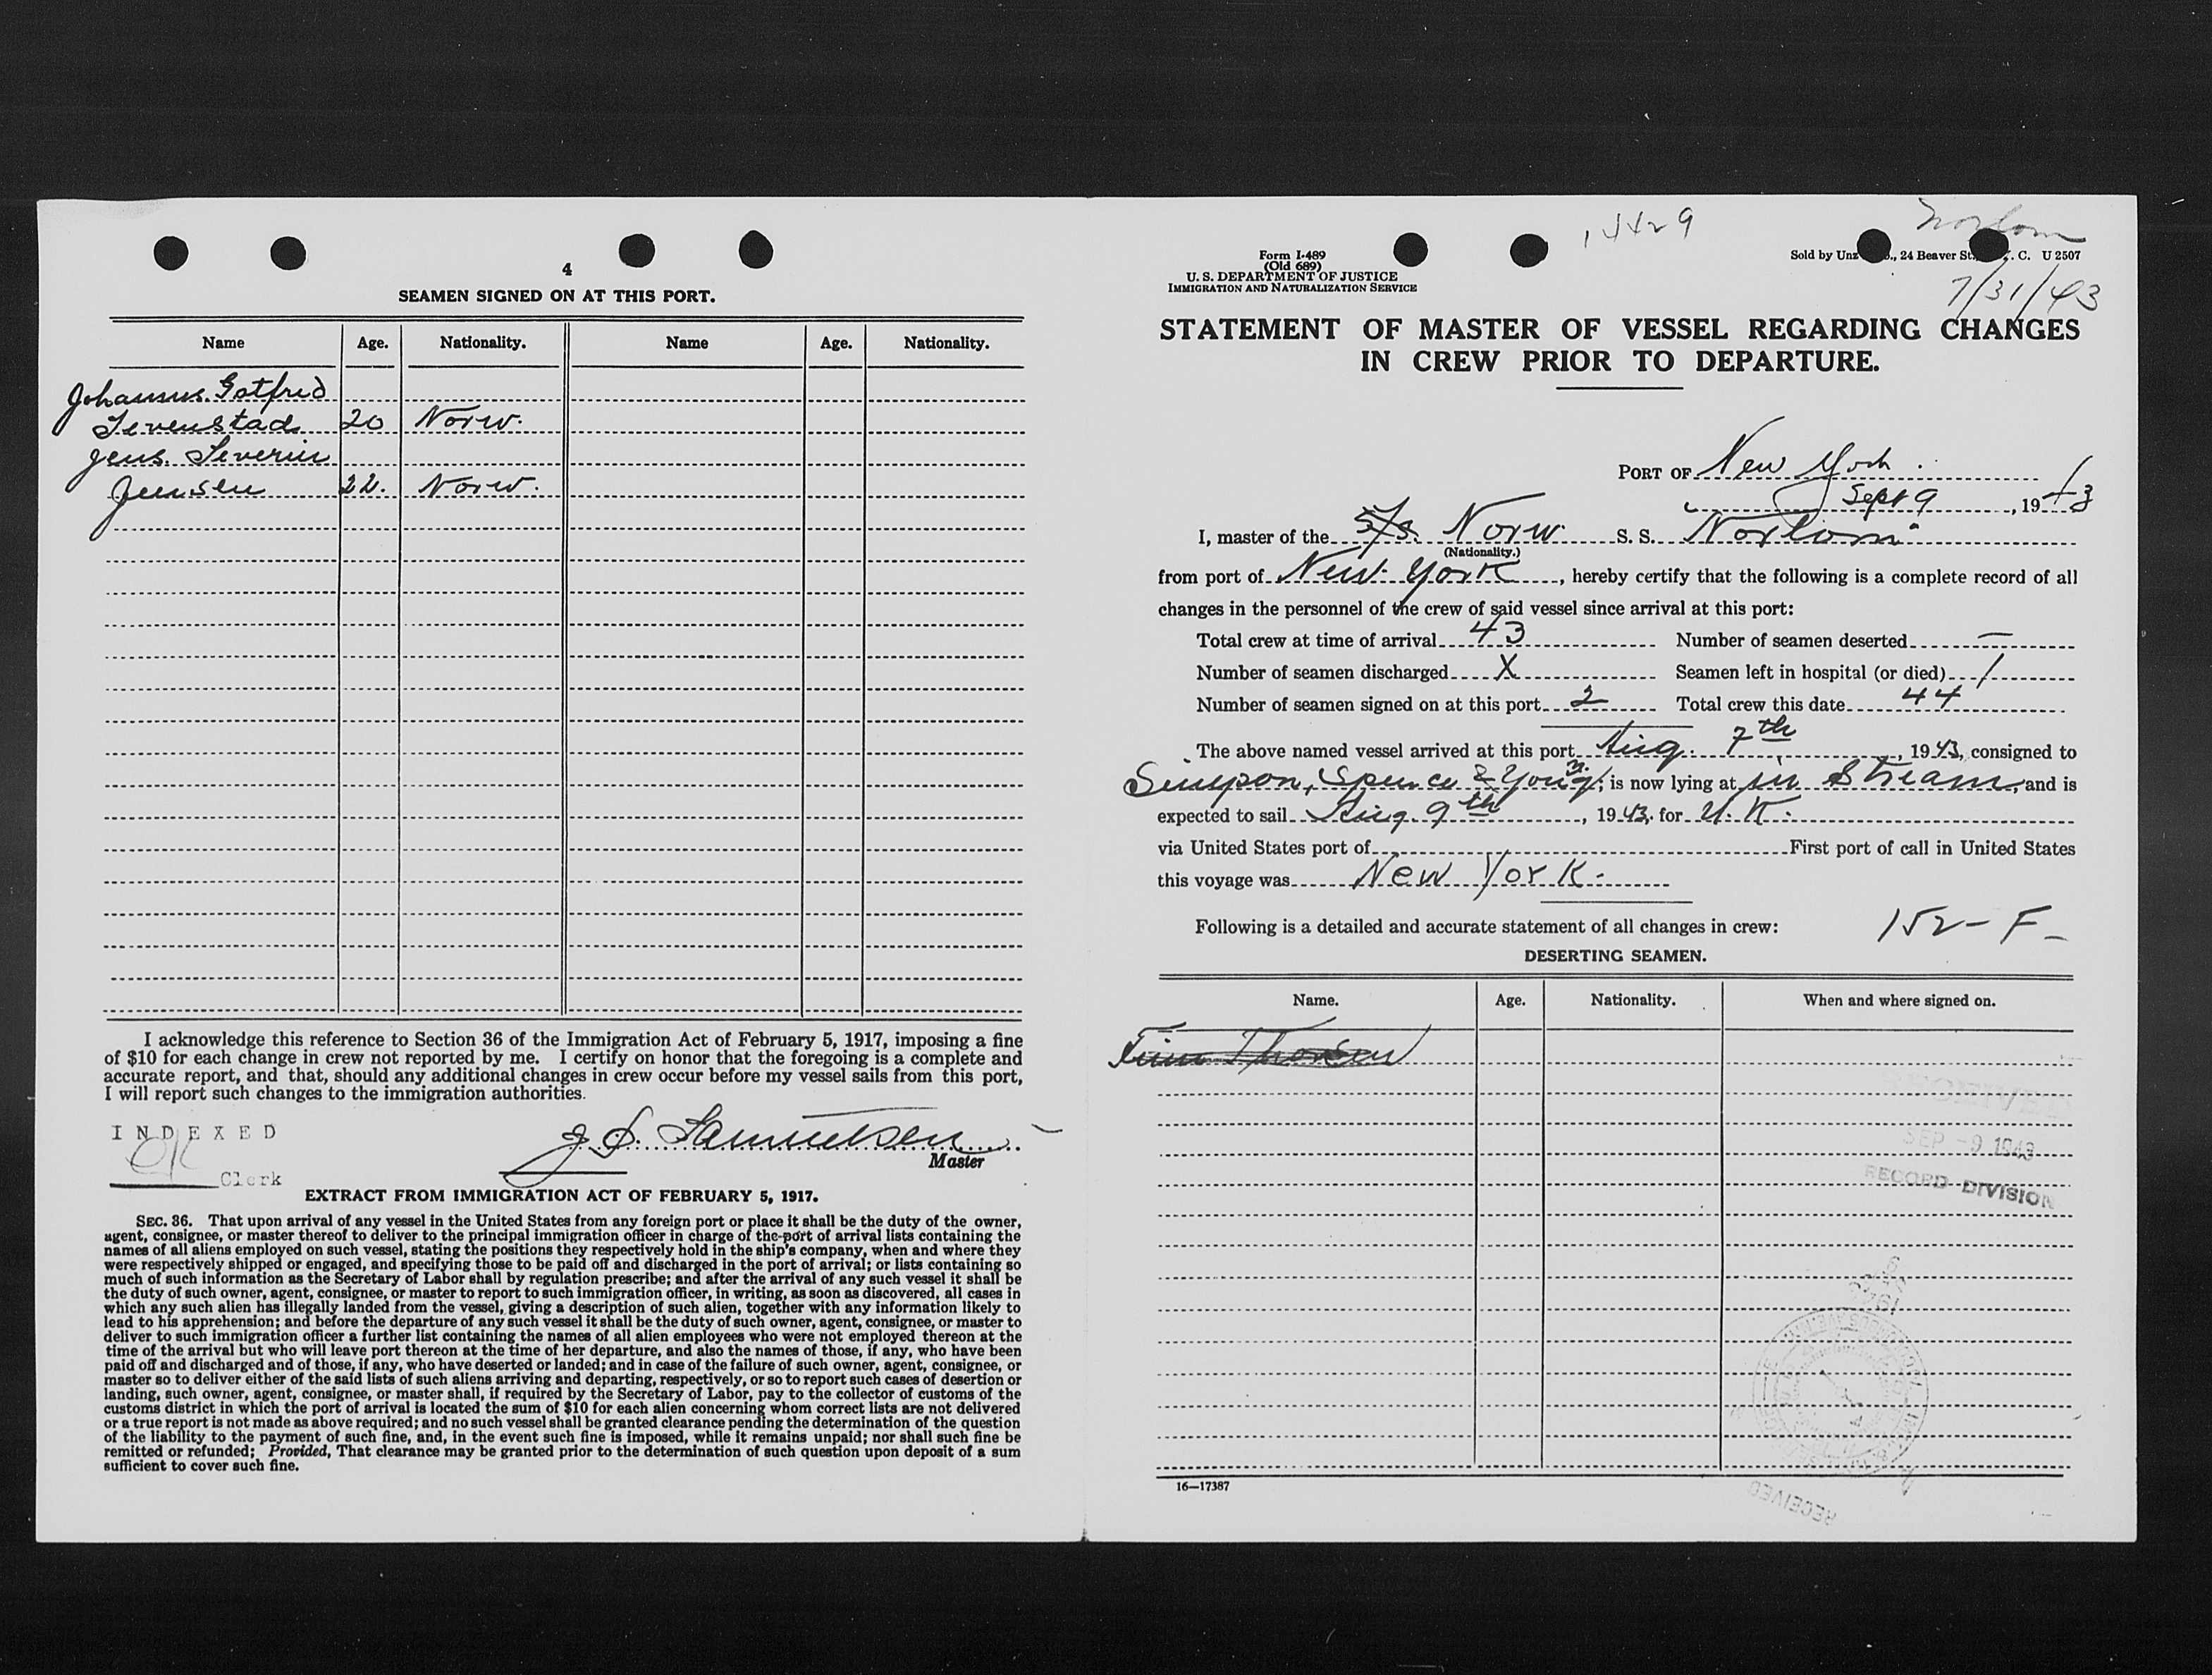 4
SEAMEN SIGNED ON AT THIS PORT.
Name Age. Nationality. Name Age. Nationality.
Johannes Gotfred
Tevenstad 20 Norw.
Jens. Severin
Jensen 22. Norw.
I acknowledge this reference to Section 36 of the Immigration Act of February 5, 1917, imposing a fine
of $10 for each change in crew not reported by me. I certify on honor that the foregoing is a complete and
accurate report, and that, should any additional changes in crew occur before my vessel sails from this port,
I will report such changes to the immigration authorities.
INDEXED
Clerk
J. S. Samuelsen
Master
EXTRACT FROM IMMIGRATION ACT OF FEBRUARY 5, 1917.
SEC. 36. That upon arrival of any vessel in the United States from any foreign port or place it shall be the duty of the owner,
agent, consignee, or master thereof to deliver to the principal immigration officer in charge of the port of arrival lists containing the
names of all aliens employed on such vessel, stating the positions they respectively hold in the ship's company, when and where they
were respectively shipped or engaged, and specifying those to be paid off and discharged in the port of arrival; or lists containing so
much of such information as the Secretary of Labor shall by regulation prescribe; and after the arrival of any such vessel it shall be
the duty of such owner, agent, consignee, or master to report to such immigration officer, in writing, as soon as discovered, all cases in
which any such alien has illegally landed from the vessel, giving a description of such alien, together with any information likely to
lead to his apprehension; and before the departure of any such vessel it shall be the duty of such owner, agent, consignee, or master to
deliver to such immigration officer a further list containing the names of all alien employees who were not employed thereon at the
time of the arrival but who will leave port thereon at the time of her departure, and also the names of those, if any, who have been
paid off and discharged and of those, if any, who have deserted or landed; and in case of the failure of such owner, agent, consignee, or
master so to deliver either of the said lists of such aliens arriving and departing, respectively, or so to report such cases of desertion or
landing, such owner, agent, consignee, or master shall, if required by the Secretary of Labor, pay to the collector of customs of the
customs district in which the port of arrival is located the sum of $10 for each alien concerning whom correct lists are not delivered
or a true report is not made as above required; and no such vessel shall be granted clearance pending the determination of the question
of the liability to the payment of such fine, and, in the event such fine is imposed, while it remains unpaid; nor shall such fine be
remitted or refunded; Provided, That clearance may be granted prior to the determination of such question upon deposit of a sum
sufficient to cover such fine.
14429
Norlom
7/31/43
Form I-489
(Old 689)
U. S. DEPARTMENT OF JUSTICE
IMMIGRATION AND NATURALIZATION SERVICE
Sold by Unz 24 Beaver St. C. U 2507
STATEMENT OF MASTER OF VESSEL REGARDING CHANGES
IN CREW PRIOR TO DEPARTURE.
PORT OF New York.
Sept 9, 1943
I, master of the S/S. Norw. S. S. Norlom
(Nationality.)
from port of New York, hereby certify that the following is a complete record of all
changes in the personnel of the crew of said vessel since arrival at this port:
Total crew at time of arrival 43 Number of seamen deserted —
Number of seamen discharged X Seamen left in hospital (or died) 1
Number of seamen signed on at this port 2 Total crew this date 44
The above named vessel arrived at this port Aug. 7th, 1943, consigned to
Simpson, Spence & Young; is now lying at in Stream and is
expected to sail Aug. 9th, 1943, for U.K.
via United States port of First port of call in United States
this voyage was New York.
Following is a detailed and accurate statement of all changes in crew: 152-F-
DESERTING SEAMEN.
Name. Age. Nationality. When and where signed on.
Finn Thorsen
RECEIVED
SEP -9 1943
RECORD DIVISION
RECEIVED
16—17387